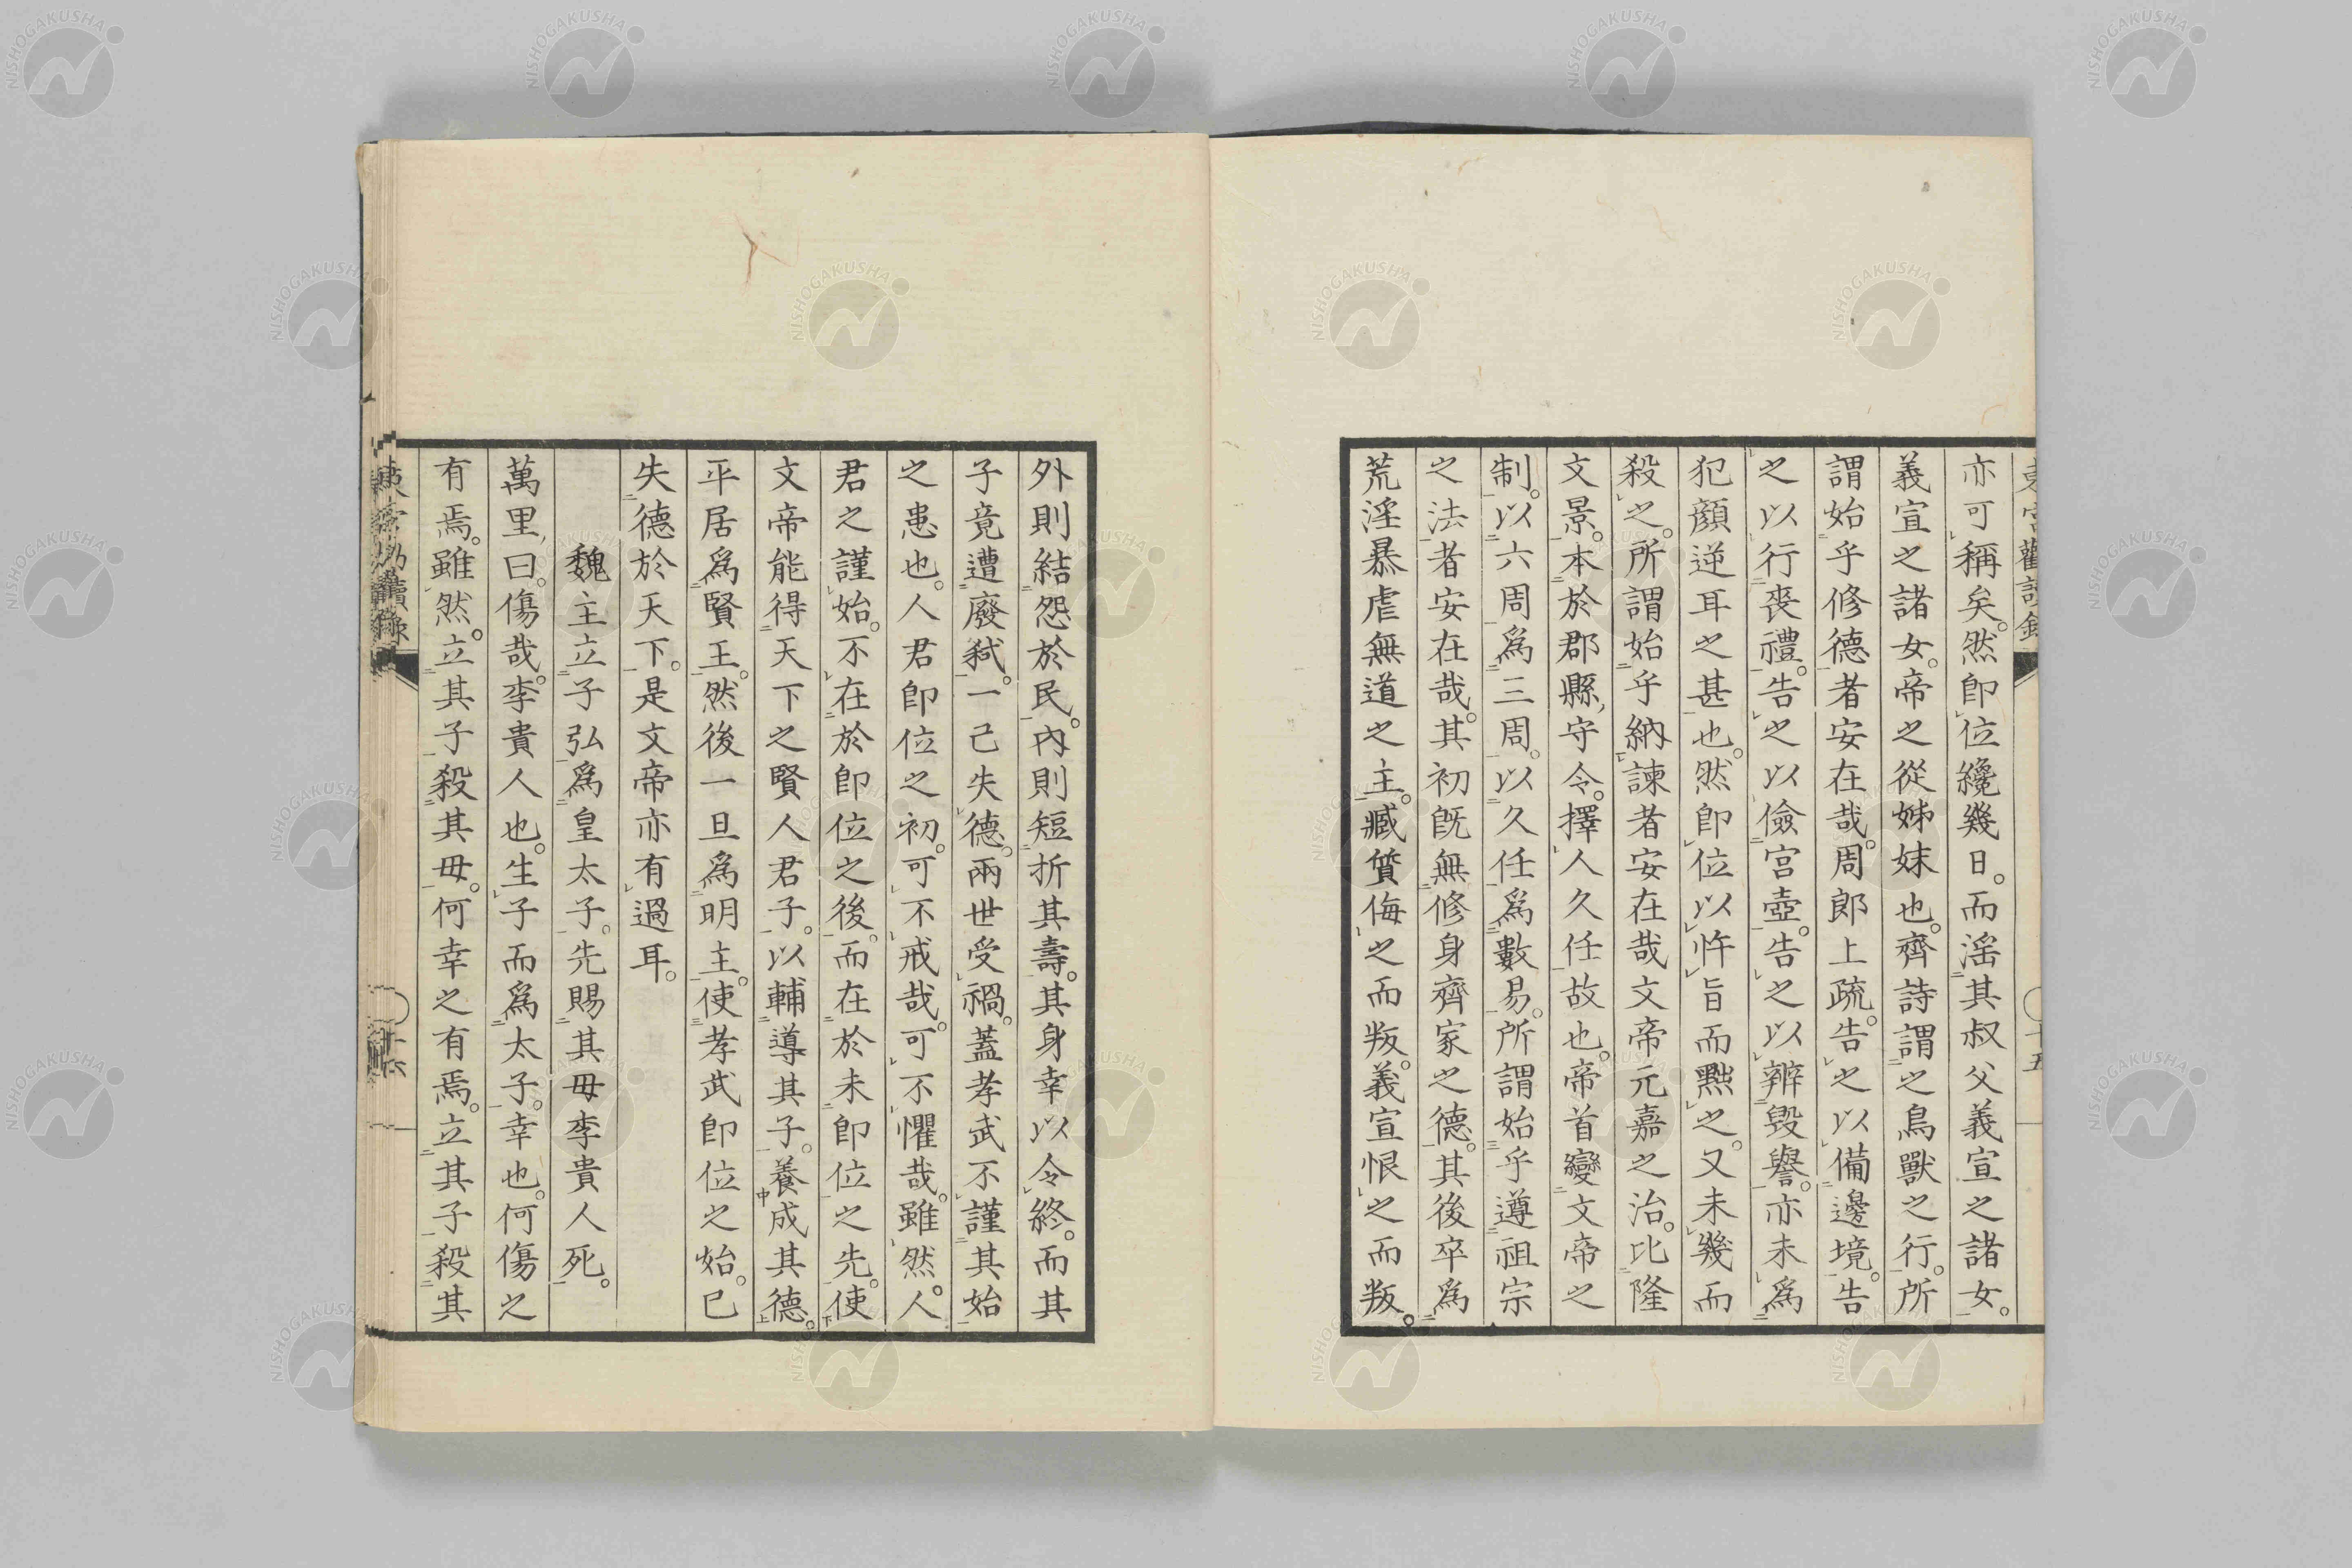 亦可稱矣。然卽位纔幾日。而淫其叔父義宣之諸女。
義宣之諸女。帝之從姊妹也。齊詩謂之鳥獸之行。所
謂始乎修德者安在哉。周郎上疏。告之以備邊境。告
之以行喪禮。告之以儉宮壼。告之以辨毀譽。亦未爲
犯顏逆耳之甚也。然卽位以忤旨而黜之。又未幾而
殺之。所謂始乎納諫者安在哉文帝元嘉之治。比隆
文景。本於郡縣,守令。擇人久任故也。帝首變文帝之
制。以六周爲三周。以久任爲數易。所謂始乎遵祖宗
之法者安在哉。其初旣無修身齊家之德。其後卒爲
荒淫暴虐無道之主。臧質侮之而叛。義宣恨之而叛。
外則結怨於民。內則短折其壽。其身幸以令終。而其
子竟遭廢弑。一己失德。兩世受禍。蓋孝武不謹其始
之患也。人君卽位之初。可不戒哉。可不懼哉。雖然。人
君之謹始。不在於卽位之後。而在於未卽位之先。使
文帝能得天下之賢人君子。以輔導其子。養成其德。
平居爲賢王。然後一旦爲明主。使孝武卽位之始。已
失德於天下。是文帝亦有過耳。
魏主立子弘爲皇太子。先賜其母李貴人死。
萬里,曰。傷哉。李貴人也。生子而爲太子。幸也。何傷之
有焉。雖然。立其子殺其母。何幸之有焉。立其子殺其
十六
十五
NISHOGAKUSHA